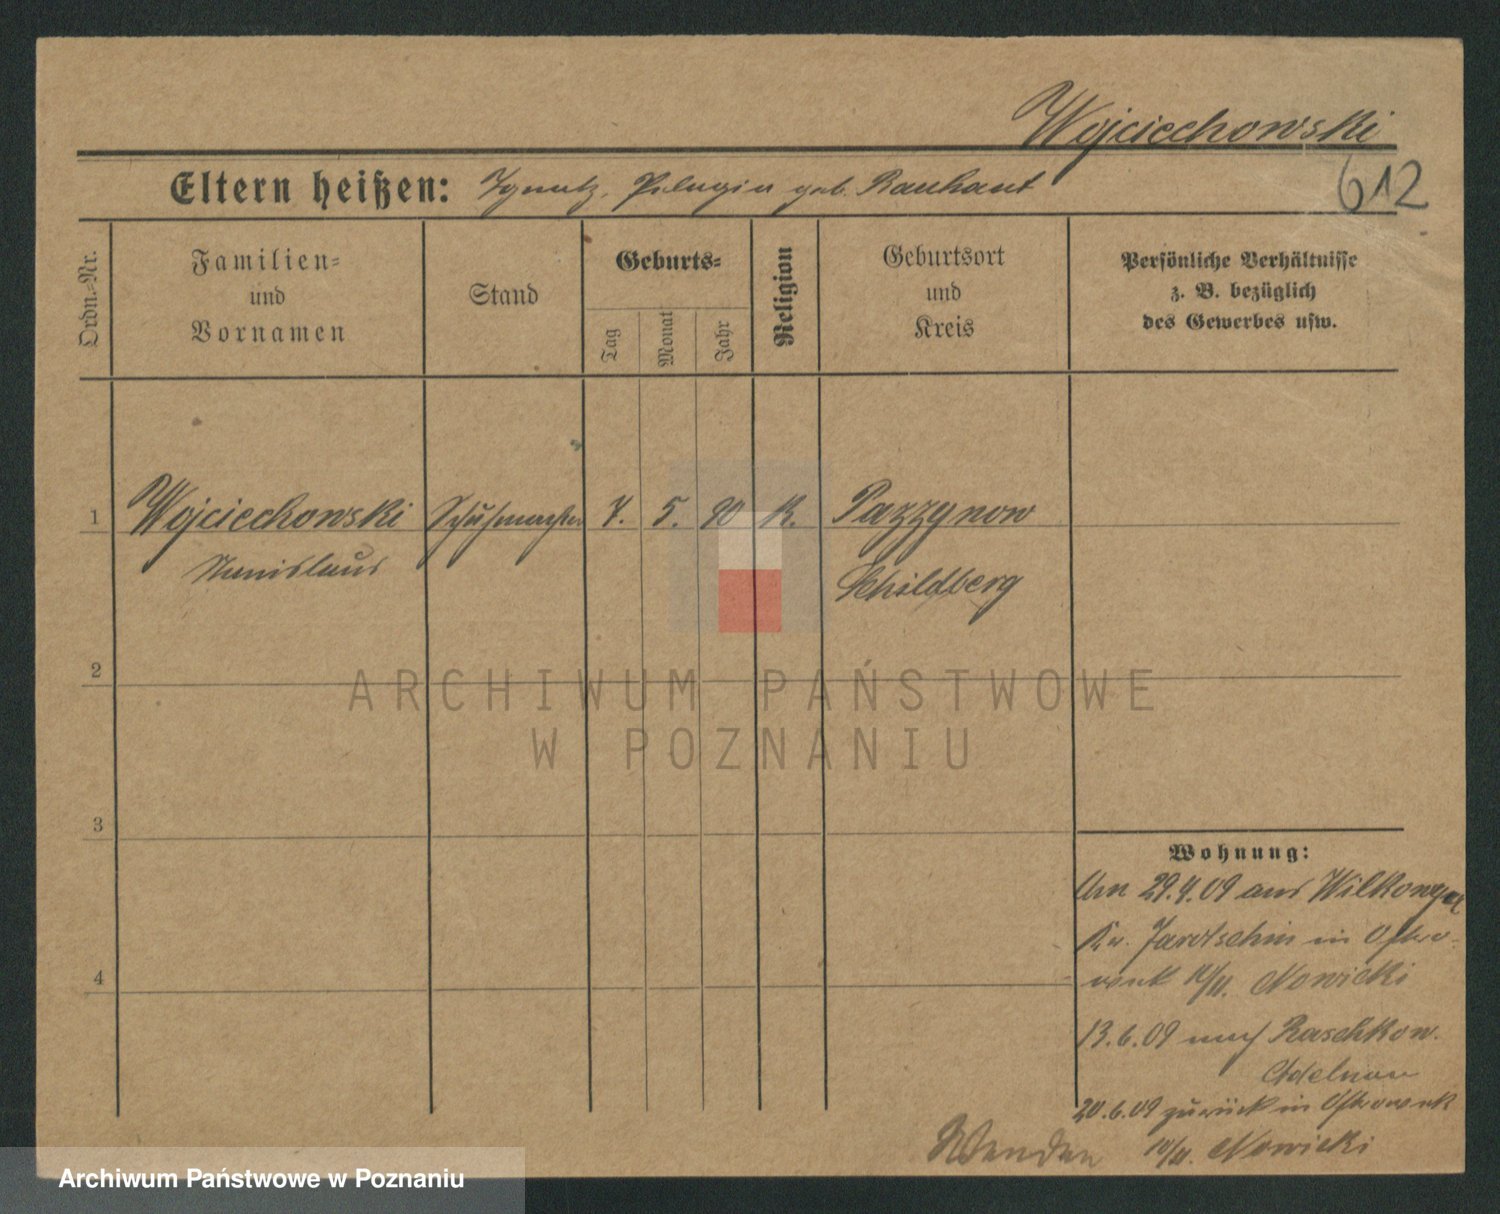 Wojciechowski
612
Eltern heißen: Ignatz, Pelagia geb. Bauhaut
Ordn.-Nr.
Familien-
und
Vornamen
Stand
Geburts-
Tag
Monat
Jahr
Religion
Geburtsort
und
Kreis
Persönliche Verhältnisse
z. B. bezüglich
des Gewerbes usw.
1 Wojciechowski Schuhmacher 7. 5. 90 K. Parzynow
Stanislaus Schildberg
2
3
4
Wohnung:
Am 29.4.09 aus Wilkowya
Kr. Jarotschin in Ostro-
wo bei Nowicki
13.6.09 nach Raschkow.
Adelnau
20.6.09 zurück in Ostrowo
Nowicki
Wenden
ARCHIWUM PAŃSTWOWE
W POZNANIU
Archiwum Państwowe w Poznaniu